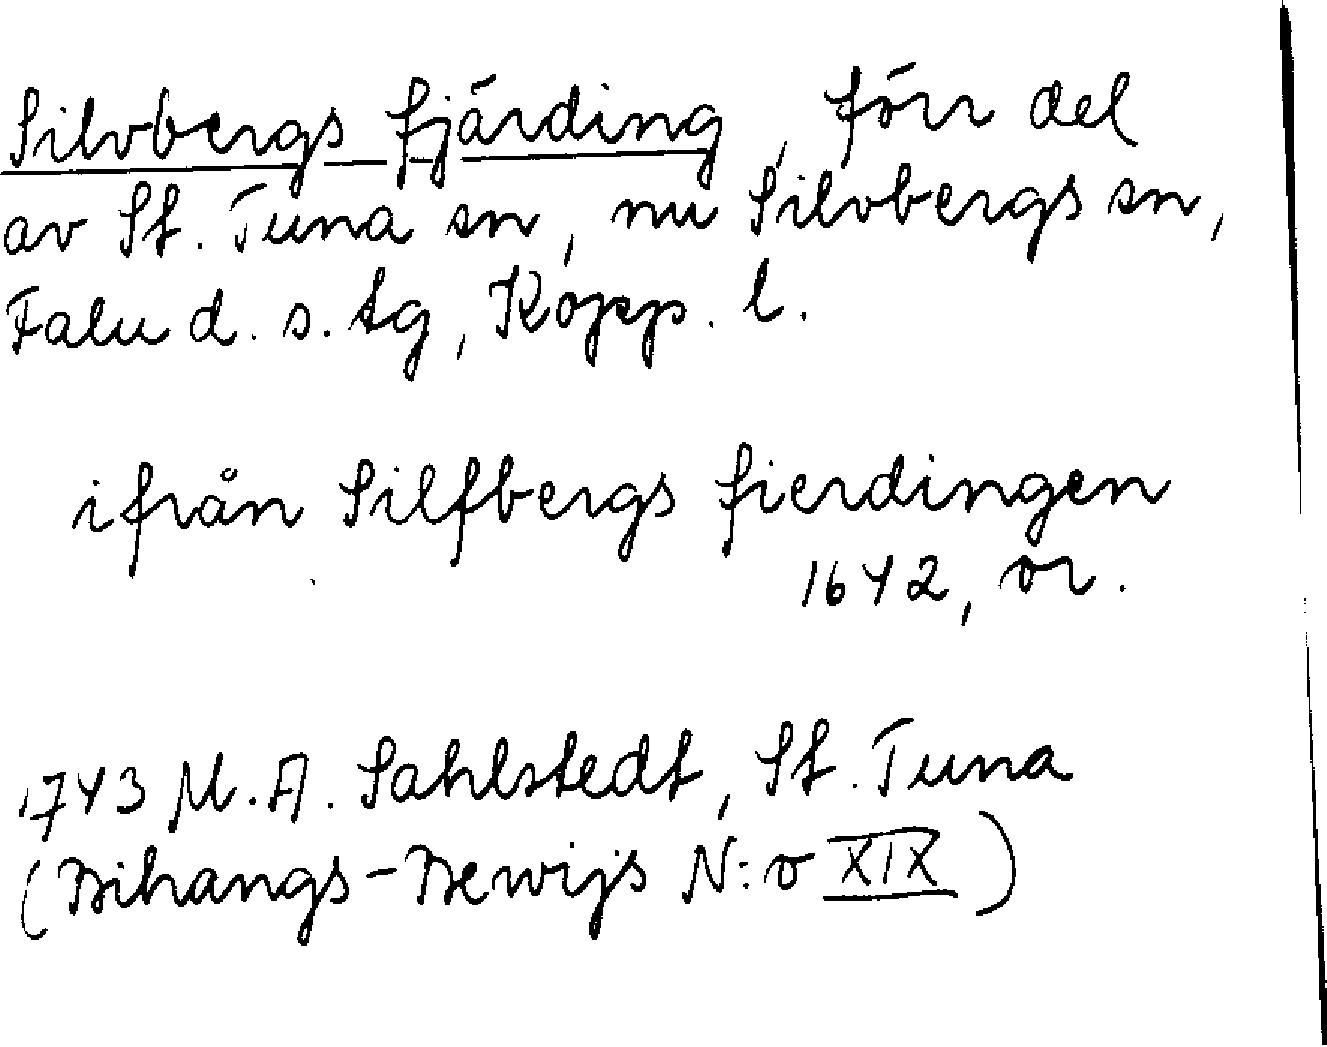 Silvbergs fjärding, förr del
av St. Tuna sn, nu Silvbergs sn,
Falu d. s. tg, Kopp. l.
ifrån Silfbergs fierdingen
1642, or.
1743 M. A. Sahlstedt, St. Tuna
(Bihangs-Bewijs N:o XIX)